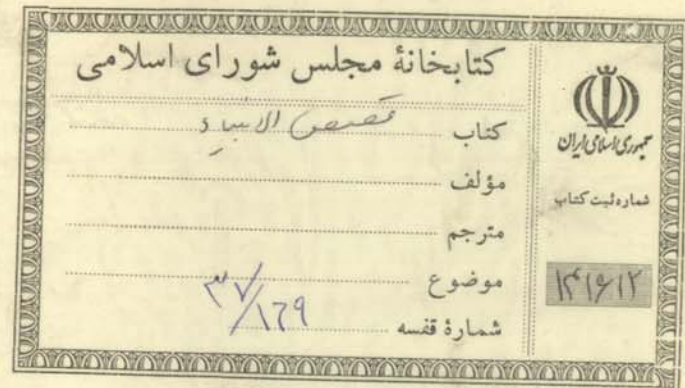 کتابخانهٔ مجلس شورای اسلامی
کتاب قصص الانبیاء
مؤلف
مترجم
موضوع
شمارهٔ قفسه ۳۷/۱۶۹
جمهوری اسلامی ایران
شماره ثبت کتاب
۱۴۱۶۱۲